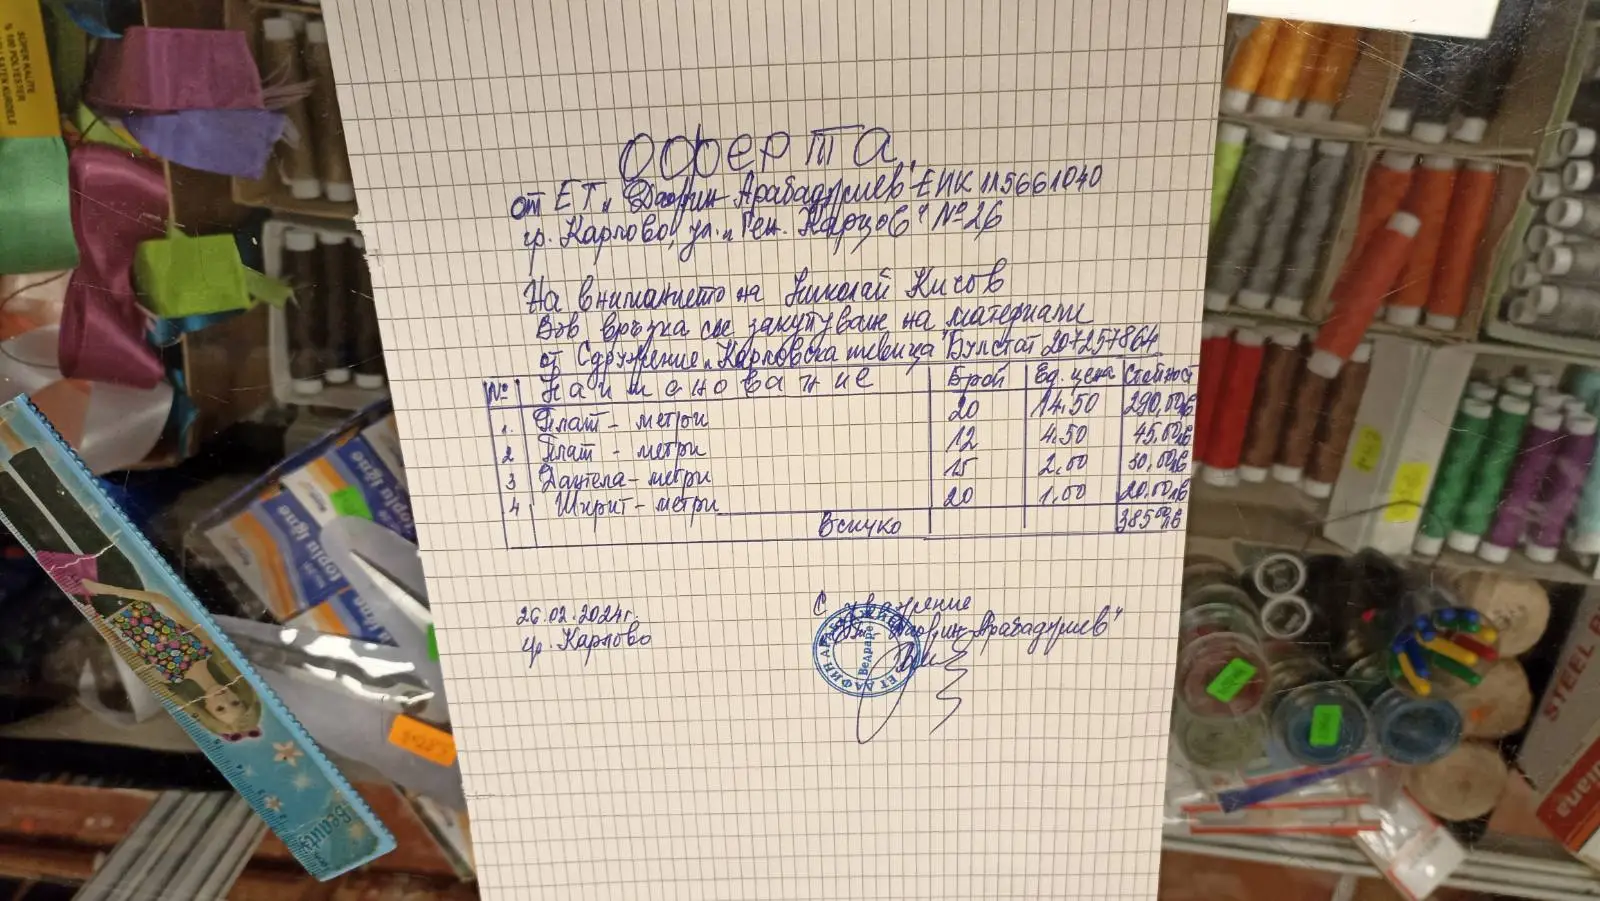 Оферта
от ЕТ „Дафин-Арабаджиев" ЕИК 115661040
гр. Карлово, ул. „Ген. Карцов" №26
На вниманието на Николай Кисов
Във връзка със закупуване на материали
от Сдружение „Карловска шевица" Булстат 207257864
№ Наименование Брой Ед. цена Стойност
1. Плат - метри 20 14.50 290,00лв
2 Плат - метри 12 4.50 45,00лв
3 Дантела - метри 15 2.00 30,00лв
4 Ширит - метри 20 1.00 20.00лв
Всичко 385 00лв
26.02.2024г.
гр. Карлово
С уважение
"Дафин-Арабаджиев"
Ведраре
SÜPER KALİTE
% 100 POLYESTER
SATEN KURDELE
toplu iğne
toplu iğne
Beauty
STEEL